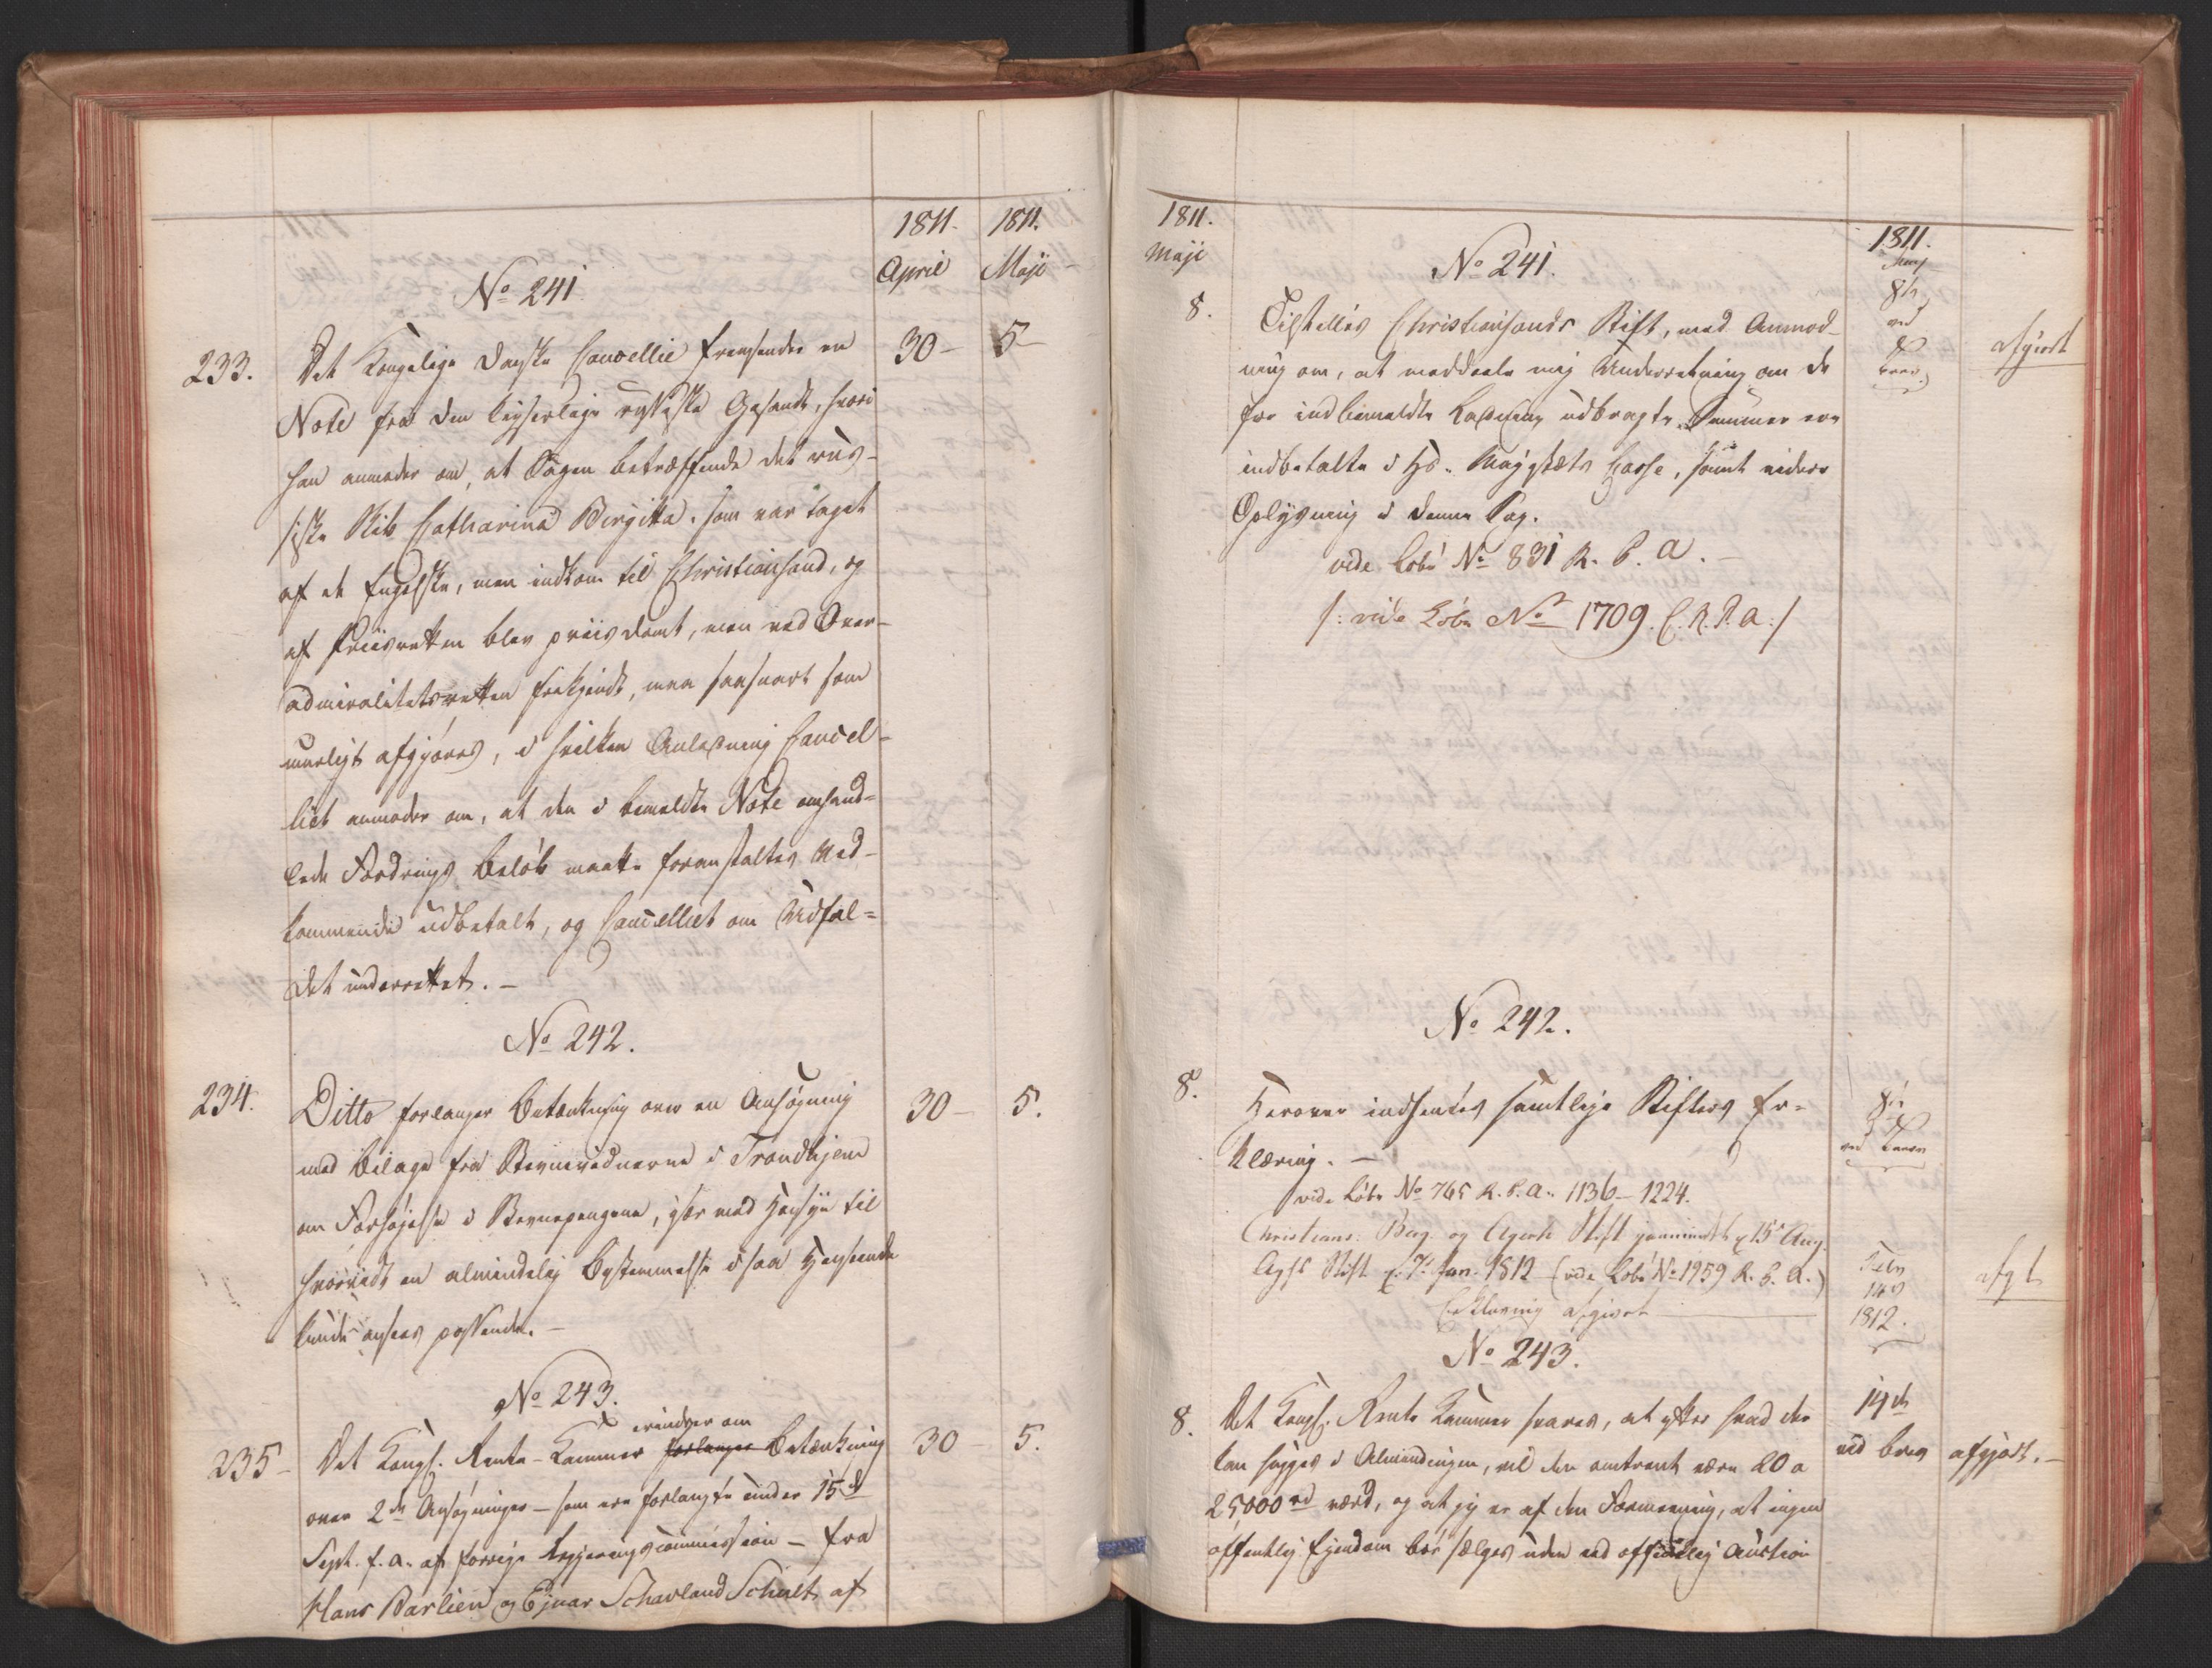 1811. 1811.
April Maji
No 241
233. Det Kongelige Danske Cancellie fremsender en 30- 5-
Note fra den keyserlige russiske Gesandt, hvori
han anmoder om, at Sagen betræffende det rus-
siske Skib Catharina Birgitta, som var taget
af de Engelske, men indkom til Christiansand, og
af Priisretten blev priisdømt, men ved Over-
admiralitetsretten frikjendt, maa saasnart som
mueligt afgjøres, i hvilken Anledning Cancel-
liet anmoder om, at den i bemeldte Note omhand-
lede Fordrings Beløb maatte foranstaltes Ved-
kommende udbetalt, og Cancelliet om Udfal-
det underrettet. -
No 242.
234. Ditto forlanger Betænkning over en Ansøgning 30- 5.
med Bilage fra Stevnevidnerne i Trondhjem
om Forhøjelse i Stevnepengene, især med Hensyn til
hvorvidt en almindelig Bestemmelse i saa Henseende
kunde ansees passende. -
No 243.
erindrer om
235- Det Kongl. Rente-Kammer forlanger Betænkning 30- 5.
over 2de Ansøgninger - som ere forlangte under 15d
Sept. f. a. af forrige Regjeringscommission - fra
Hans Barlien og Ejnar Schavland Schult af
1811.
Maji
1811.
Maj
No 241.
8. Tilskrives Christiansands Stift, med Anmod-
ning om, at meddeele mig Underretning om de
for indbemeldte Ladning udbragte Summer ere
indbetalte i Hs. Majestæts Casse, samt videre
Oplysning i denne Sag.
vide Løbe No 831 R. P. A. -
/: vide Løbe No 1709. C. R. P. A :/
8de
ved
Brev
afgiort
No 242.
8. Herover indhentes samtlige Stifters Er-
klæring. -
vide Løbe No 765 R. P. A. 1136 - 1224.
Christians: Berg. og Agers Stift paamindet d 15 Aug.
Aghs Stift d. 7 Jan. 1812 (vide Løbe No 1959 R. P. A.)
Erklæring afgivet
8de
ved Breve
Febr
14
1812.
afgt
No 243.
8. Det Kongl. Rente Kammer svares, at efter hvad der
kan hugges i Almindingen, vil den omtrent være 20 a
25000 rd værd, og at jeg er af den Formening, at ingen
offentlig Ejendom bør sælges uden ved offentlig Auction
14de
ved brev afgjort. -